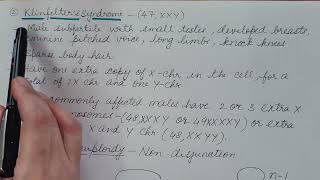 Klinfilter's Syndrome - (47, XXY)
Male subfertile with small testes, developed breasts,
feminine pitched voice, long limbs, knock knees
Sparse body hair.
Have one extra copy of X-chr in the cell, for a
total of 2X chr and one Y-chr
commonly affected males have 2 or 3 extra X
(48,XXXY or 49XXXXY) or extra
X and Y chr (48, XXYY).
- Non disjunction
n-1